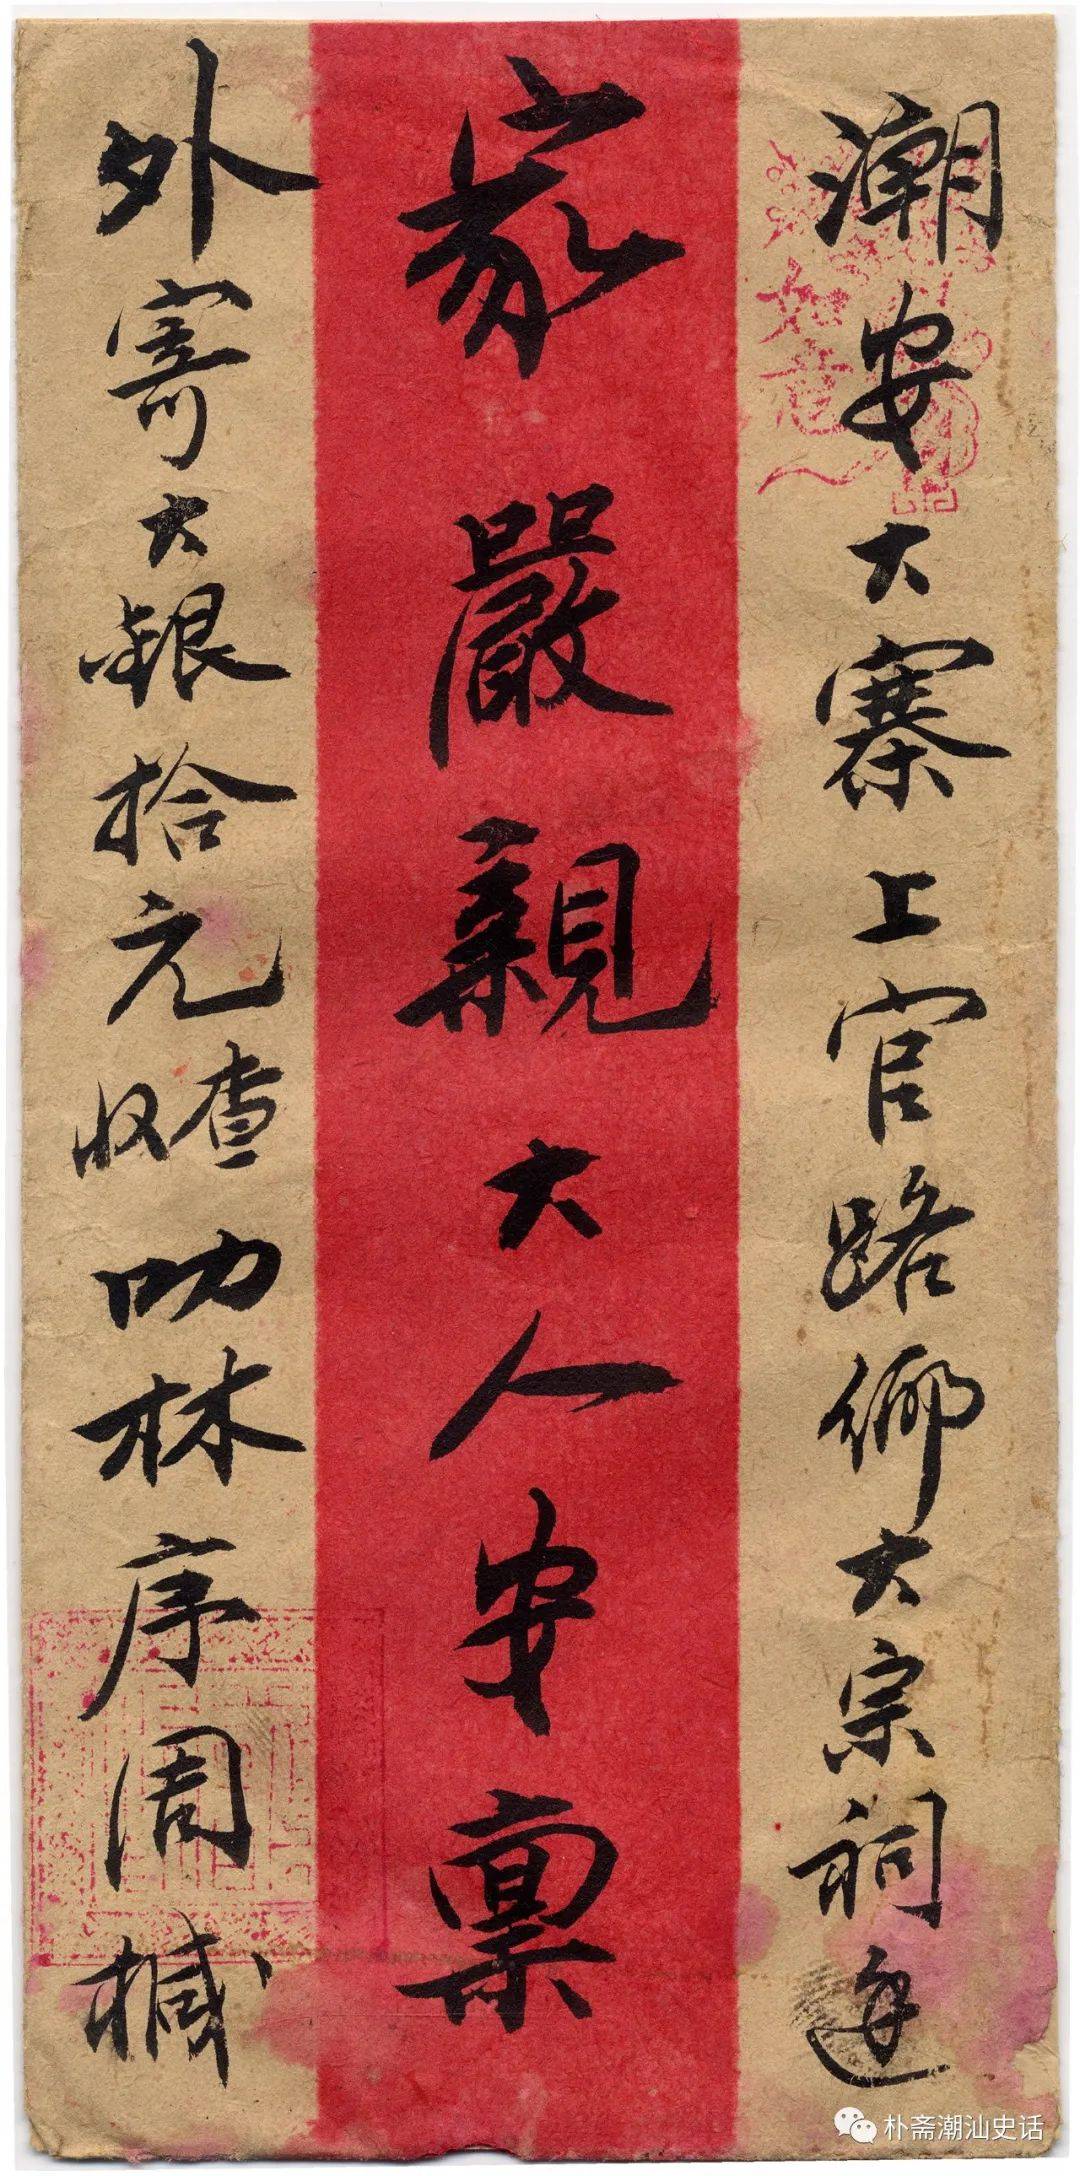 潮安大寨上官路鄉大宗祠
家嚴親大人安稟
外寄大銀拾元查收叻林序周椷
如意
朴斋潮汕史话